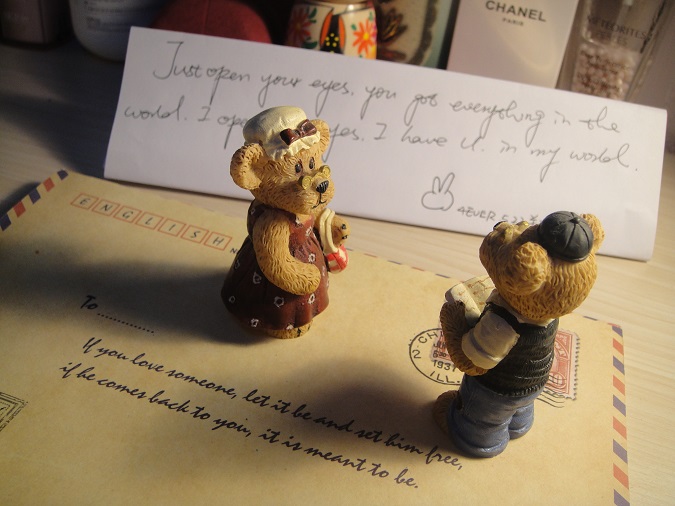 CHANEL
PARIS
METEORITES
Just open your eyes. you got everything in the
world. I op yes. I have U. in my world.
4EVER
ENGLISH
To............
If you love someone, let it be and set him free,
if he comes back to you, it is meant to be.
CH
1931
ILL.